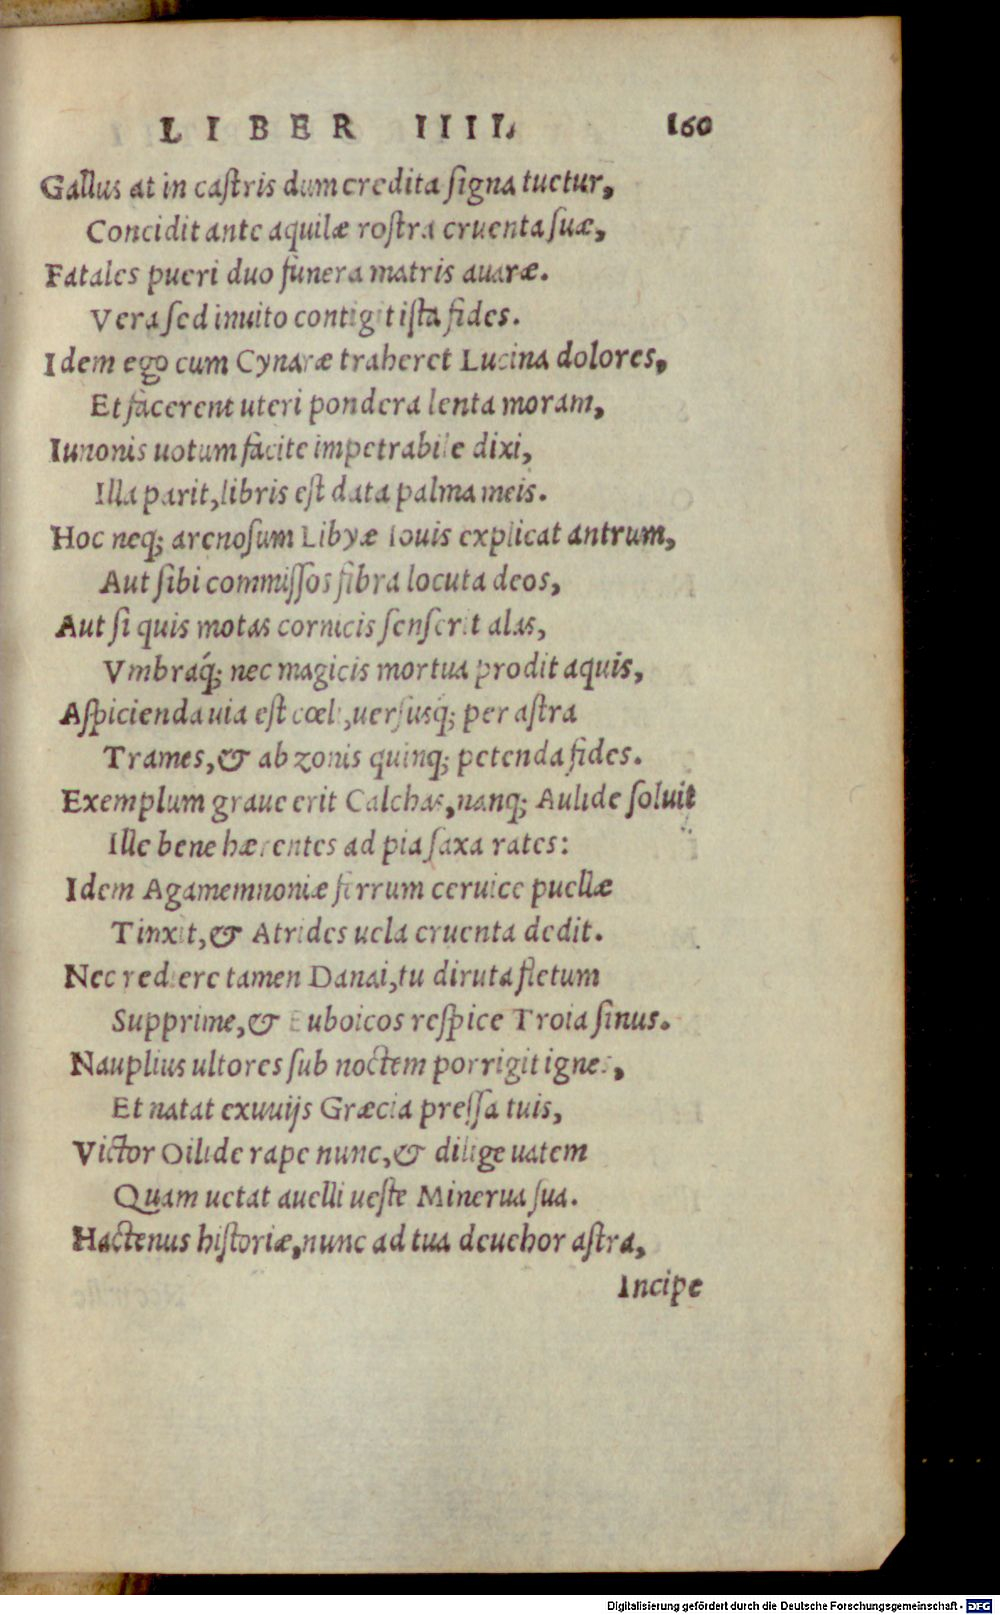 LIBER IIII. 160
Gallus at in castris dum credita signa tuetur,
Concidit ante aquilæ rostra cruenta suæ,
Fatales pueri duo funera matris auaræ.
Vera sed inuito contigit ista fides.
Idem ego cum Cynaræ traheret Lucina dolores,
Et facerent uteri pondera lenta moram,
Iunonis uotum facite impetrabile dixi,
Illa parit, libris est data palma meis.
Hoc neq; arenosum Libyæ Iouis explicat antrum,
Aut sibi commissos fibra locuta deos,
Aut si quis motas cornicis senserit alas,
Vmbraq́; nec magicis mortua prodit aquis,
Aspicienda uia est cœli, uersusq́; per astra
Trames, & ab zonis quinq; petenda fides.
Exemplum graue erit Calchas, nanq; Aulide soluit
Ille bene hærentes ad pia saxa rates:
Idem Agamemnoniæ ferrum ceruice puellæ
Tinxit, & Atrides uela cruenta dedit.
Nec rediere tamen Danai, tu diruta fletum
Supprime, & Euboicos respice Troia sinus.
Nauplius ultores sub noctem porrigit ignes,
Et natat exuuijs Græcia pressa tuis,
Victor Oilide rape nunc, & dilige uatem
Quam uetat auelli ueste Minerua sua.
Hactenus historiæ, nunc ad tua deuehor astra,
Incipe
Digitalisierung gefördert durch die Deutsche Forschungsgemeinschaft - DFG